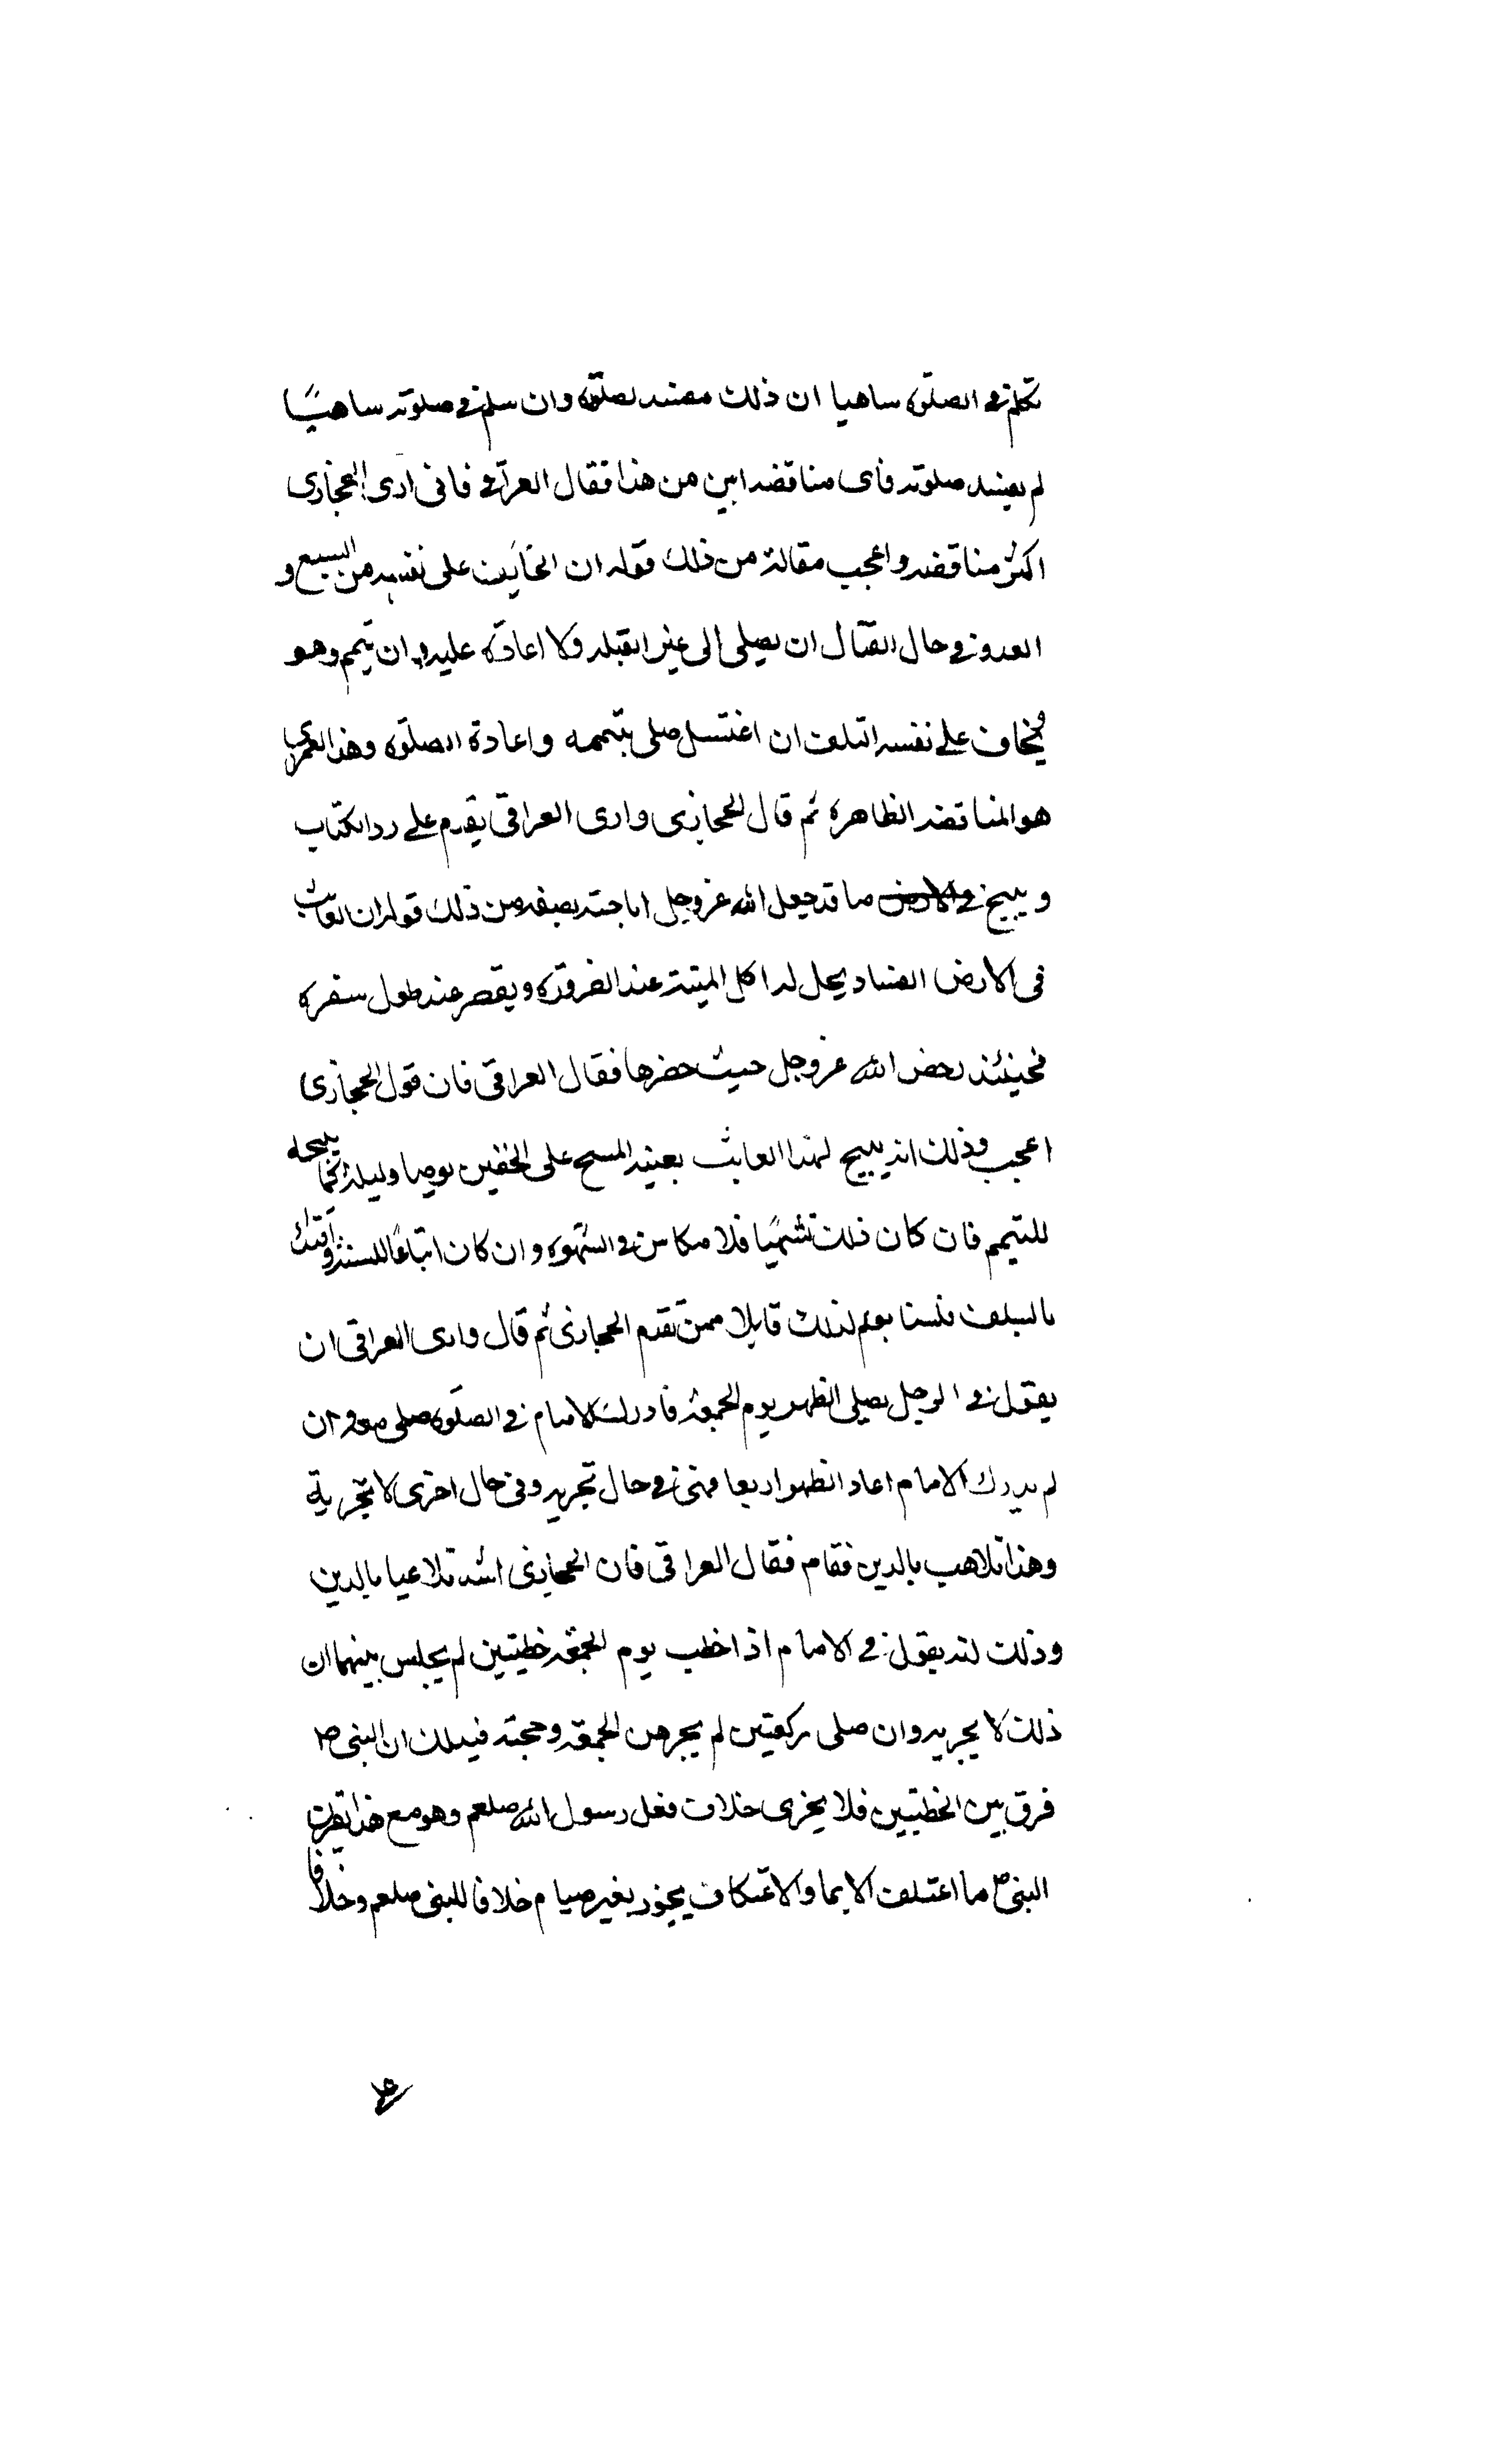 تكلم في الصلوة ساهيا ان ذلك مفسد لصلوته وان سلم في صلوته ساهيًا
لم يفسد صلوته فاى مناقضه ابين من هذا فقال العراقى فانى ارى الحجازى
اكثر مناقضه واعجب مقالة من ذلك قوله ان الخائف على نفسه من السبع و
العدو في حال القتال ان يصلى الى غير القبله ولا اعادة عليه وان تيمم وهو
يخاف على نفسه التلف ان اغتسل صلى بتيممه واعادة الصلوة وهذا لعمرى
هو المناقضه الظاهره ثم قال الحجازى وارى العراقى يقدم على رد الكتاب
و يبيح ما قد جعل الله عز وجل اباحته بصفه من ذلك قوله ان العابث
فى الارض الفساد يحل له اكل الميتة عند الضروره ويقصر عند طول سفره
فحينئذ رخص الله عز وجل حيث حضرها فقال العراقى فان قول الحجازى
اعجب وذلك انه يبيح لهذا العابث بعينه المسح على الخفين يوما وليلة كما يبيحه
للتيمم فان كان ذلك تشهيًا فلا مكاس في الشهوه وان كان اتباعًا للسنة واقتداء
بالسلف فلسنا نعلم لذلك قايلا ممن تقدم الحجازى ثم قال وارى العراقى ان
يقول في الرجل يصلى الظهر يوم الجمعه فادرك الامام في الصلوة صلى معه وان
لم يدرك الامام اعاد الظهر اربعا فهى في حال تجزيه وفى حال اخرى لا تجزيه
وهذا تلاعب بالدين فقام فقال العراقى فان الحجازى اشد تلاعبا بالدين
وذلك انه يقول في الامام اذا خطب يوم الجمعه خطبتين لم يجلس بينهما ان
ذلك لا يجزيه وان صلى ركعتين لم يجزه من الجمعه وحجته فى ذلك ان النبى ص
فرق بين الخطبتين فلا يجزى خلاف فعل رسول الله صلعم وهو مع هذا يقول ان
النبى ص ما اعتكف الا بها والاعتكاف يجوز بغير صيام خلافا للنبى صلعم وخلافا